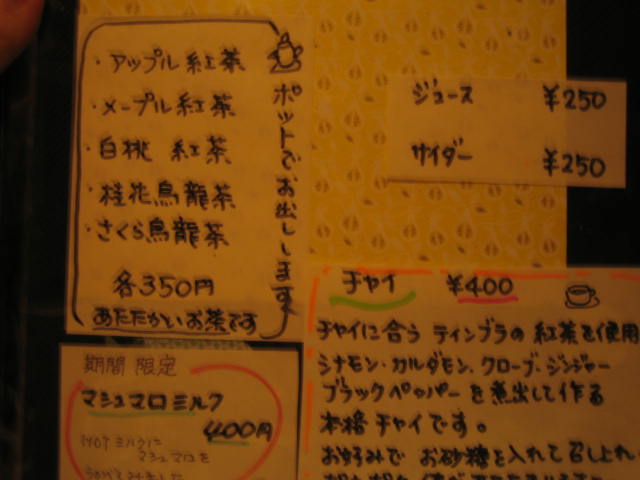 ・アップル紅茶
・メープル紅茶
・白桃 紅茶
・桂花烏龍茶
・さくら烏龍茶
各350円
あたたかいお茶です
ポットでお出しします。
ジュース ¥250
サイダー ¥250
チャイ ¥400
チャイに合う ディンブラの 紅茶を使用
シナモン・カルダモン・クローブ・ジンジャー
ブラックペッパー を煮出して作る
本格チャイです。
お好みで お砂糖を入れて召し上れ
期間限定
マシュマロミルク
400円
HOT ミルクに
マシュマロを